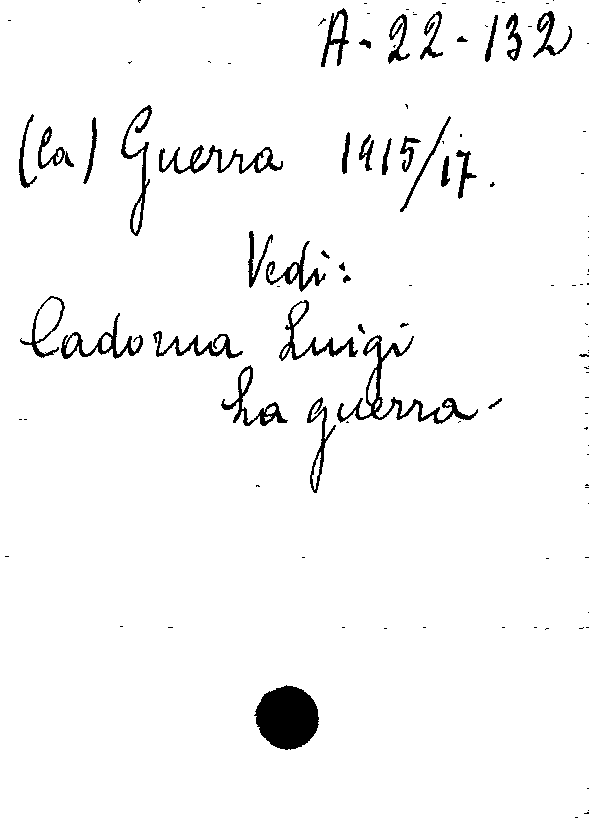 A-22-132
(La) Guerra 1915/17.
Vedi:
Cadorna Luigi
La guerra-